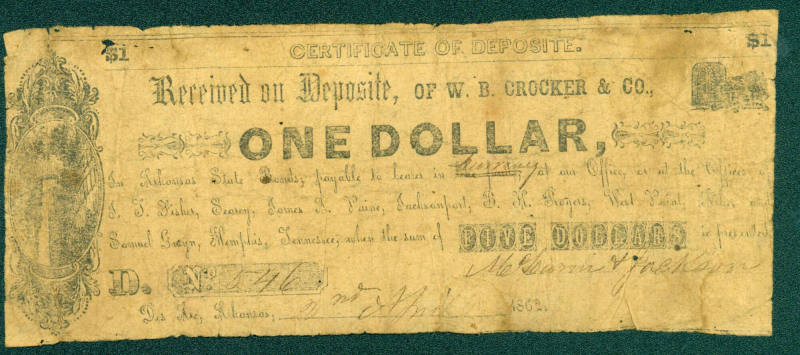 $1 CERTIFICATE OF DEPOSITE. $1
Received on Deposite, OF W. B. CROCKER & CO.,
ONE DOLLAR,
In Arkansas State Bonds, payable to bearer in Currency at our Office, or at the Offices of
J. T. Fisher, Searcy, James R. Jacksonport, B. H. Rogers, West Point, and
Samuel Gwyn, Memphis, Tennessee, when the sum of FIVE DOLLARS is presented
D. No. 546 & Jackson
Des Arc, Arkansas, 2nd April 1862.